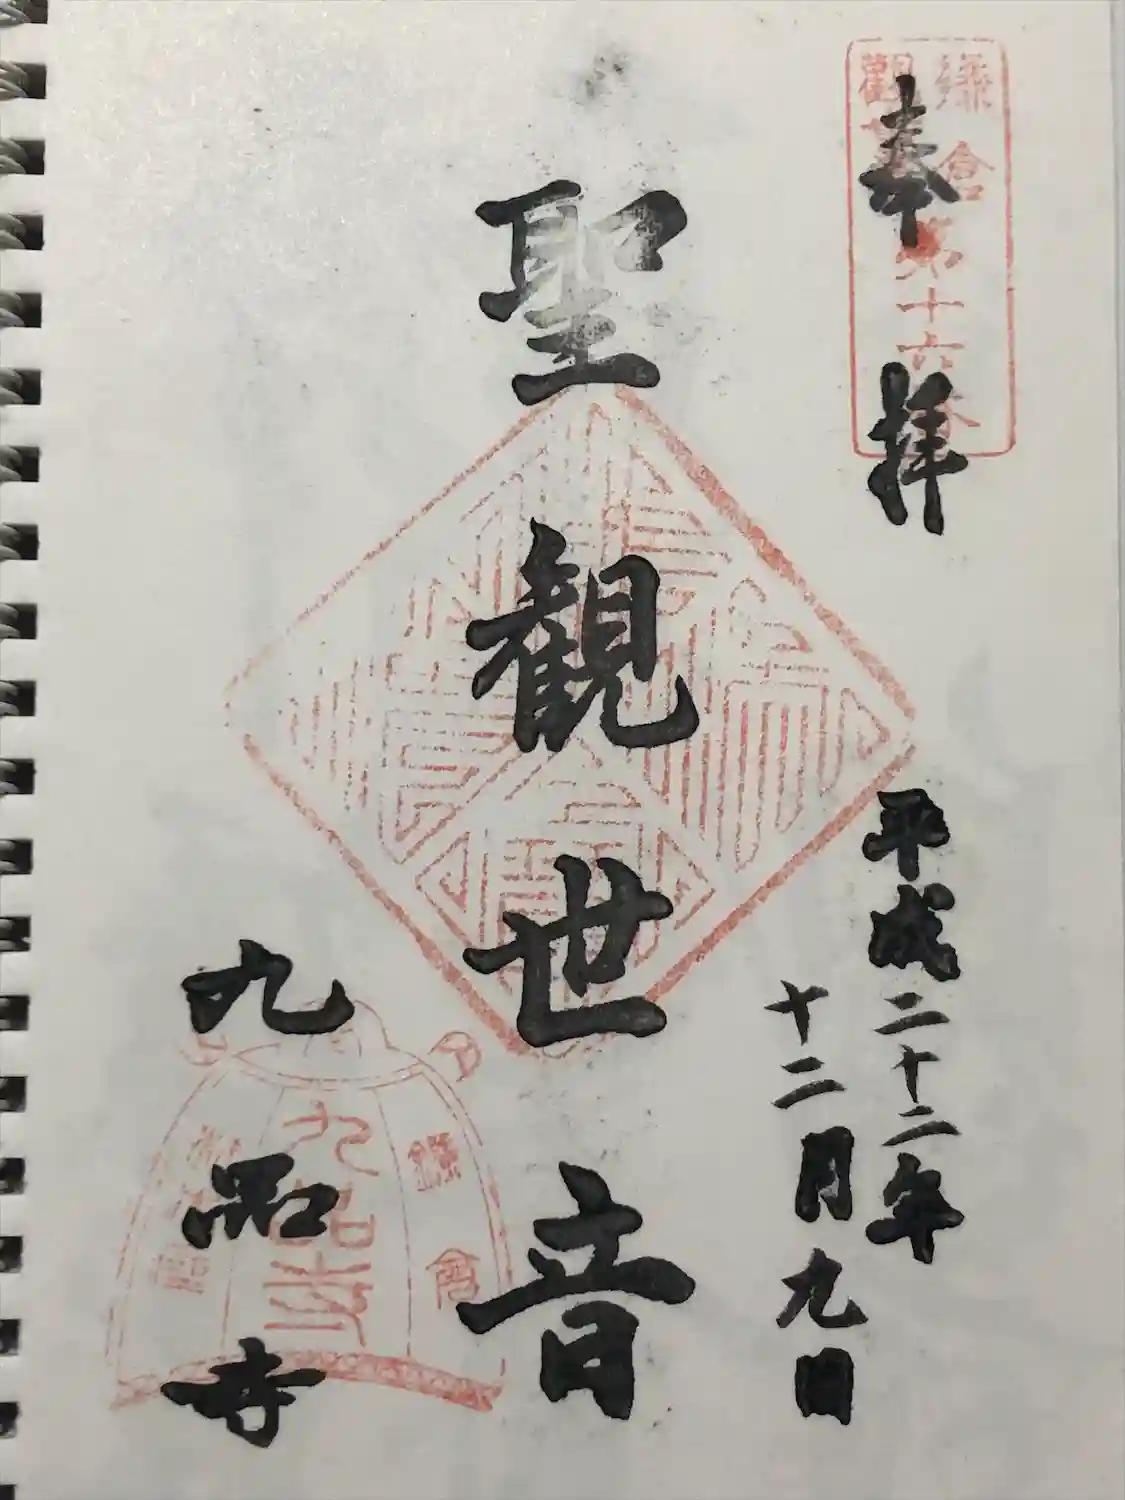 奉拝
鎌倉
觀
第十六番
平成二十二年
十二月九日
聖観世音
九品寺
鎌倉
九品寺